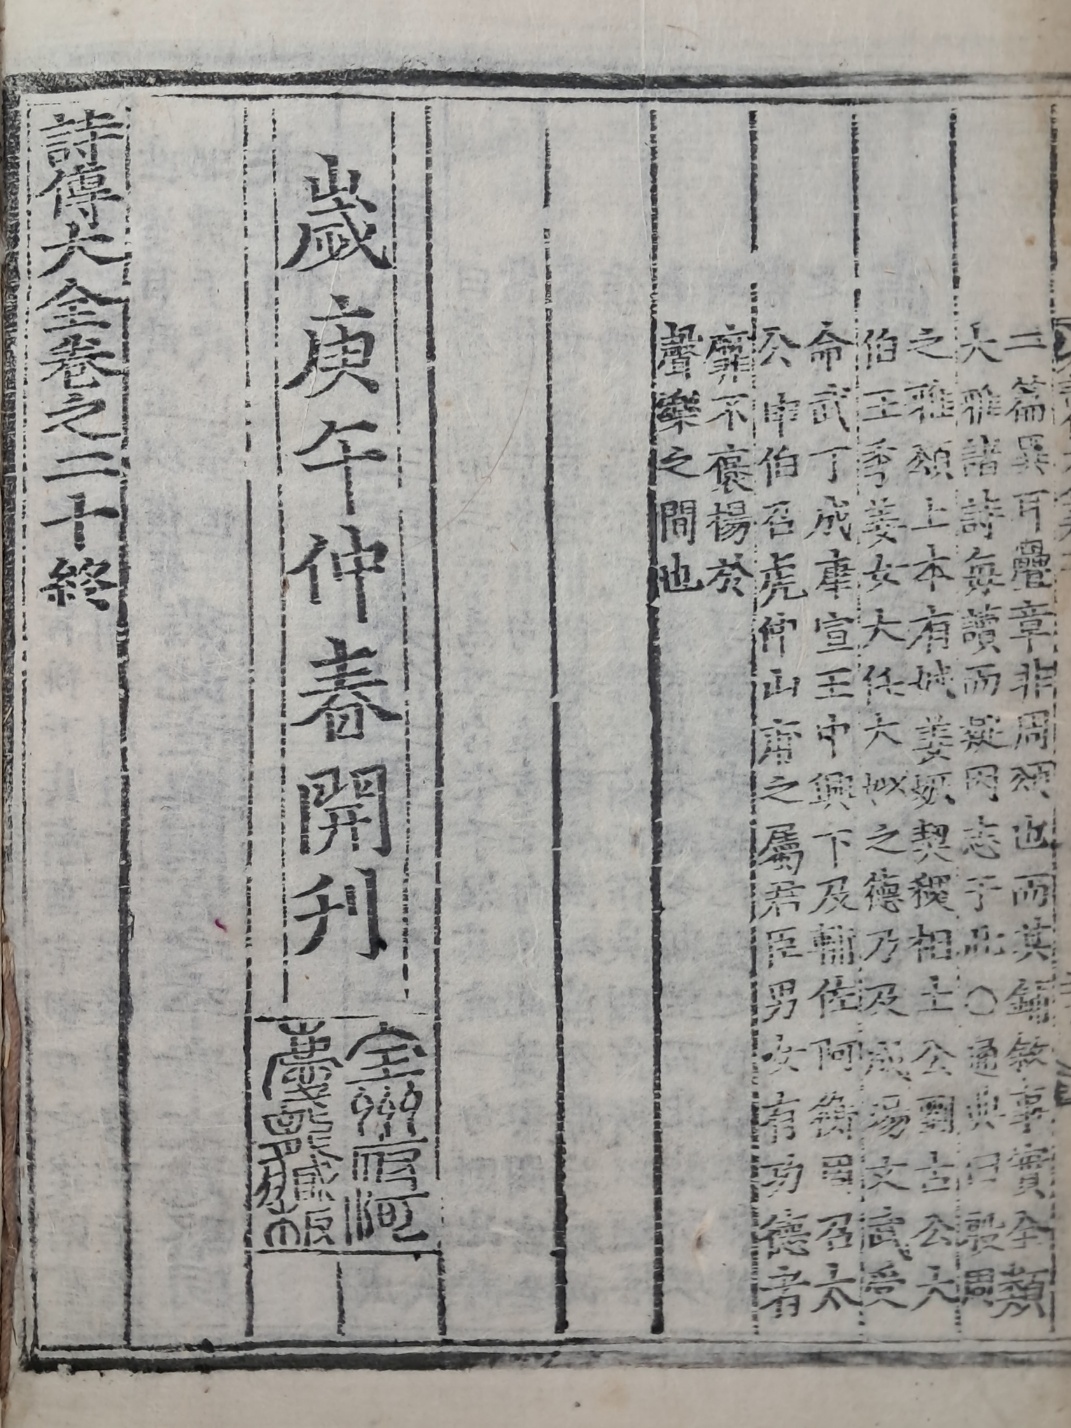 二篇異耳疊章非周頌也而其鋪敘事實全類
大雅諸詩每讀而疑因志于此○通典曰殷周
之雅頌上本有娀姜嫄契稷相土公劉古公大
伯王季姜女大任大姒之德乃及成湯文武受
命武丁成康宣王中興下及輔佐阿衡周召太
公申伯召虎仲山甫之屬君臣男女有功德者
靡不褒楊於
聲樂之間也
歲庚午仲春開刊
全州府河
慶龍藏板
詩傳大全卷之二十終